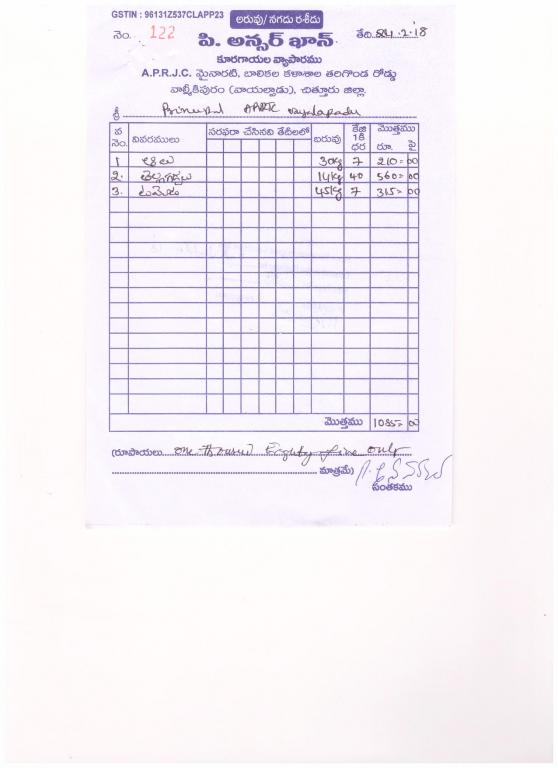 GSTIN : 96131Z537CLAPP23
అరువు/ నగదు రశీదు
నెం. 122
తేది 2.'18
పి. అన్సర్ ఖాన్
కూరగాయల వ్యాపారము
A.P.R.J.C. మైనారటి, బాలికల కళాశాల తరిగొండ రోడ్డు
వాల్మీకిపురం (వాయల్పాడు), చిత్తూరు జిల్లా.
శ్రీ Principal APRJC vayalapadu
వ నెం. వివరములు సరఫరా చేసినవి తేదీలలో బరువు కేజి 1కి ధర మొత్తము రూ. పై
1 30kg 7 210=00
2. 14kg 40 560=00
3. టమోటా 45kg 7 315=00
మొత్తము 1085=00
(రూపాయలు one thousand Eighty five only
మాత్రమే)
సంతకము